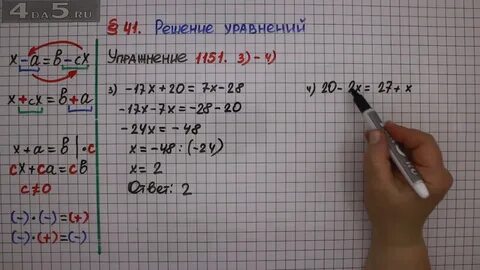 4DA5.RU
§ 41. Решение уравнений
Упражнение 1151. 3)-4)
x - a = b - cx
x + cx = b + a
x + a = b | · c
cx + ca = cb
c ≠ 0
(-) · (-) = (+)
(-) · (+) = (-)
3) -17x + 20 = 7x - 28
-17x - 7x = -28 - 20
-24x = -48
x = -48 : (-24)
x = 2
Ответ: 2
4) 20 - 2x = 27 + x